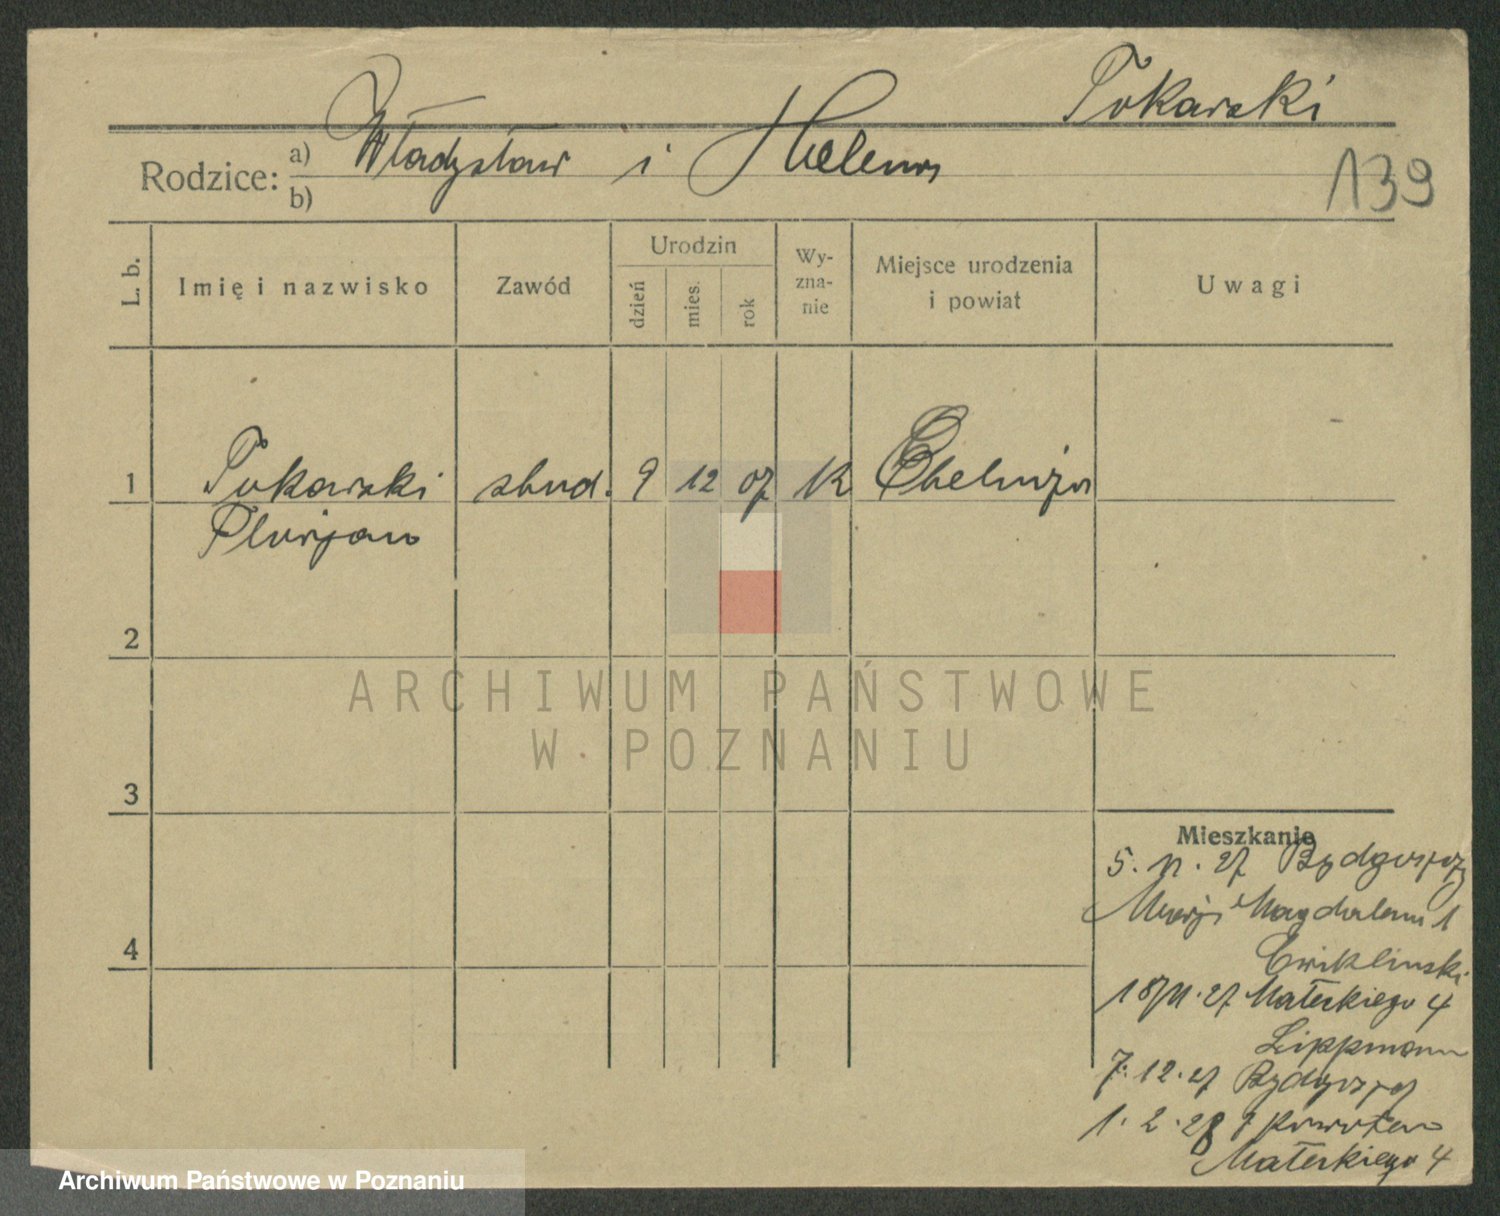 Tokarski
Rodzice: a) Władysław i Helena
b)
139
L. b.
Imię i nazwisko
Zawód
Urodzin
dzień
mies.
rok
Wy-
zna-
nie
Miejsce urodzenia
i powiat
Uwagi
1 Tokarski stud. 9 12 07 K Chełmża
Florjan
2
ARCHIWUM PAŃSTWOWE
W POZNANIU
3
Mieszkanie
5. 11. 27 Bydgoszcz
Magdaleny 1
4
Ćwikliński
18/11. 27 Małeckiego 4
Lippmann
7. 12. 27 Bydgoszcz
1. 2. 28 z powrotem
Małeckiego 4
Archiwum Państwowe w Poznaniu